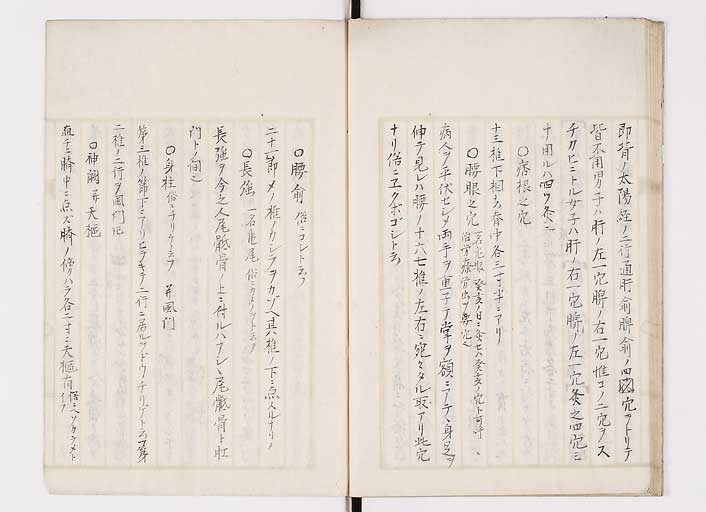 即背ノ太陽経ノ二行通肝俞脾俞ノ四穴ヲトリテ
皆不用男子ハ肝ノ左一穴脾ノ右一穴惟コノ二穴ヲス
チカヒニトル女子ハ肝ノ右一穴脾ノ左一穴灸之四穴ニ
十用ルハ四ツ灸ニ
〇痞根之穴
十三椎下相去脊中各三寸半ニアリ
〇腰眼之穴
病人ヲ平伏セシメ両手ヲ重子テ掌ヲ額ニアテ身足ヲ
伸テ見レハ腰ノ十六七椎ノ左右ニ宛々タル取アリ此穴
ナリ俗ニヱクボゴシト云
〇腰俞 俗ニコシト云フ
二十一節メノ椎ノカシラヲカゾヘ其椎ノ下ニ点スルナリ
〇長強 一名亀尾
長強ヲ今之人尾骶骨ノ上ニ付ルハアシヽ尾骶骨ト肛
門トノ間
〇身柱 俗ニチリケト云フ 并風門
第三椎ノ節下ニアリ
二椎ノ二行ヲ風門
〇神闕 并天樞
臍中ニ点ズ臍ノ傍ハラ各一寸ニ天樞有